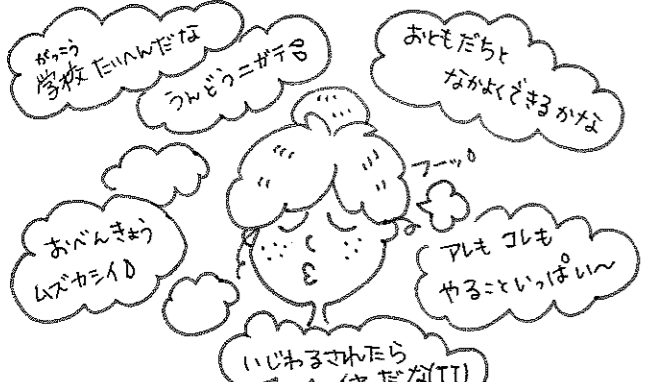 がっこう
学校 たいへんだな
うんどうニガテ
おともだちと
なかよくできるかな
フーッ
おべんきょう
ムズカシイ
アレも コレも
やることいっぱい〜
いじわるされたら
だな(TT)